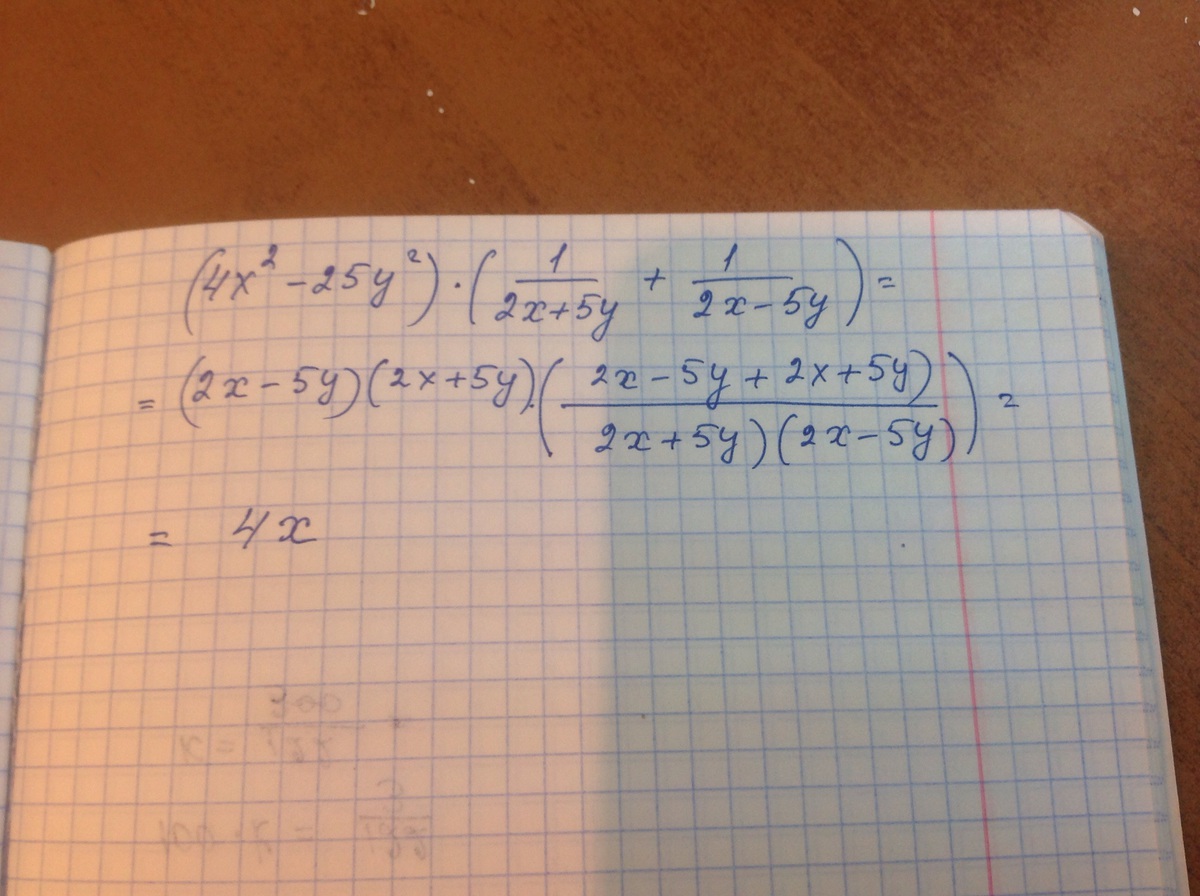 (4x² - 25y²) · (1/(2x+5y) + 1/(2x-5y)) =
= (2x - 5y)(2x+5y) · ((2x - 5y + 2x + 5y))/(2x+5y)(2x-5y)) =
= 4x